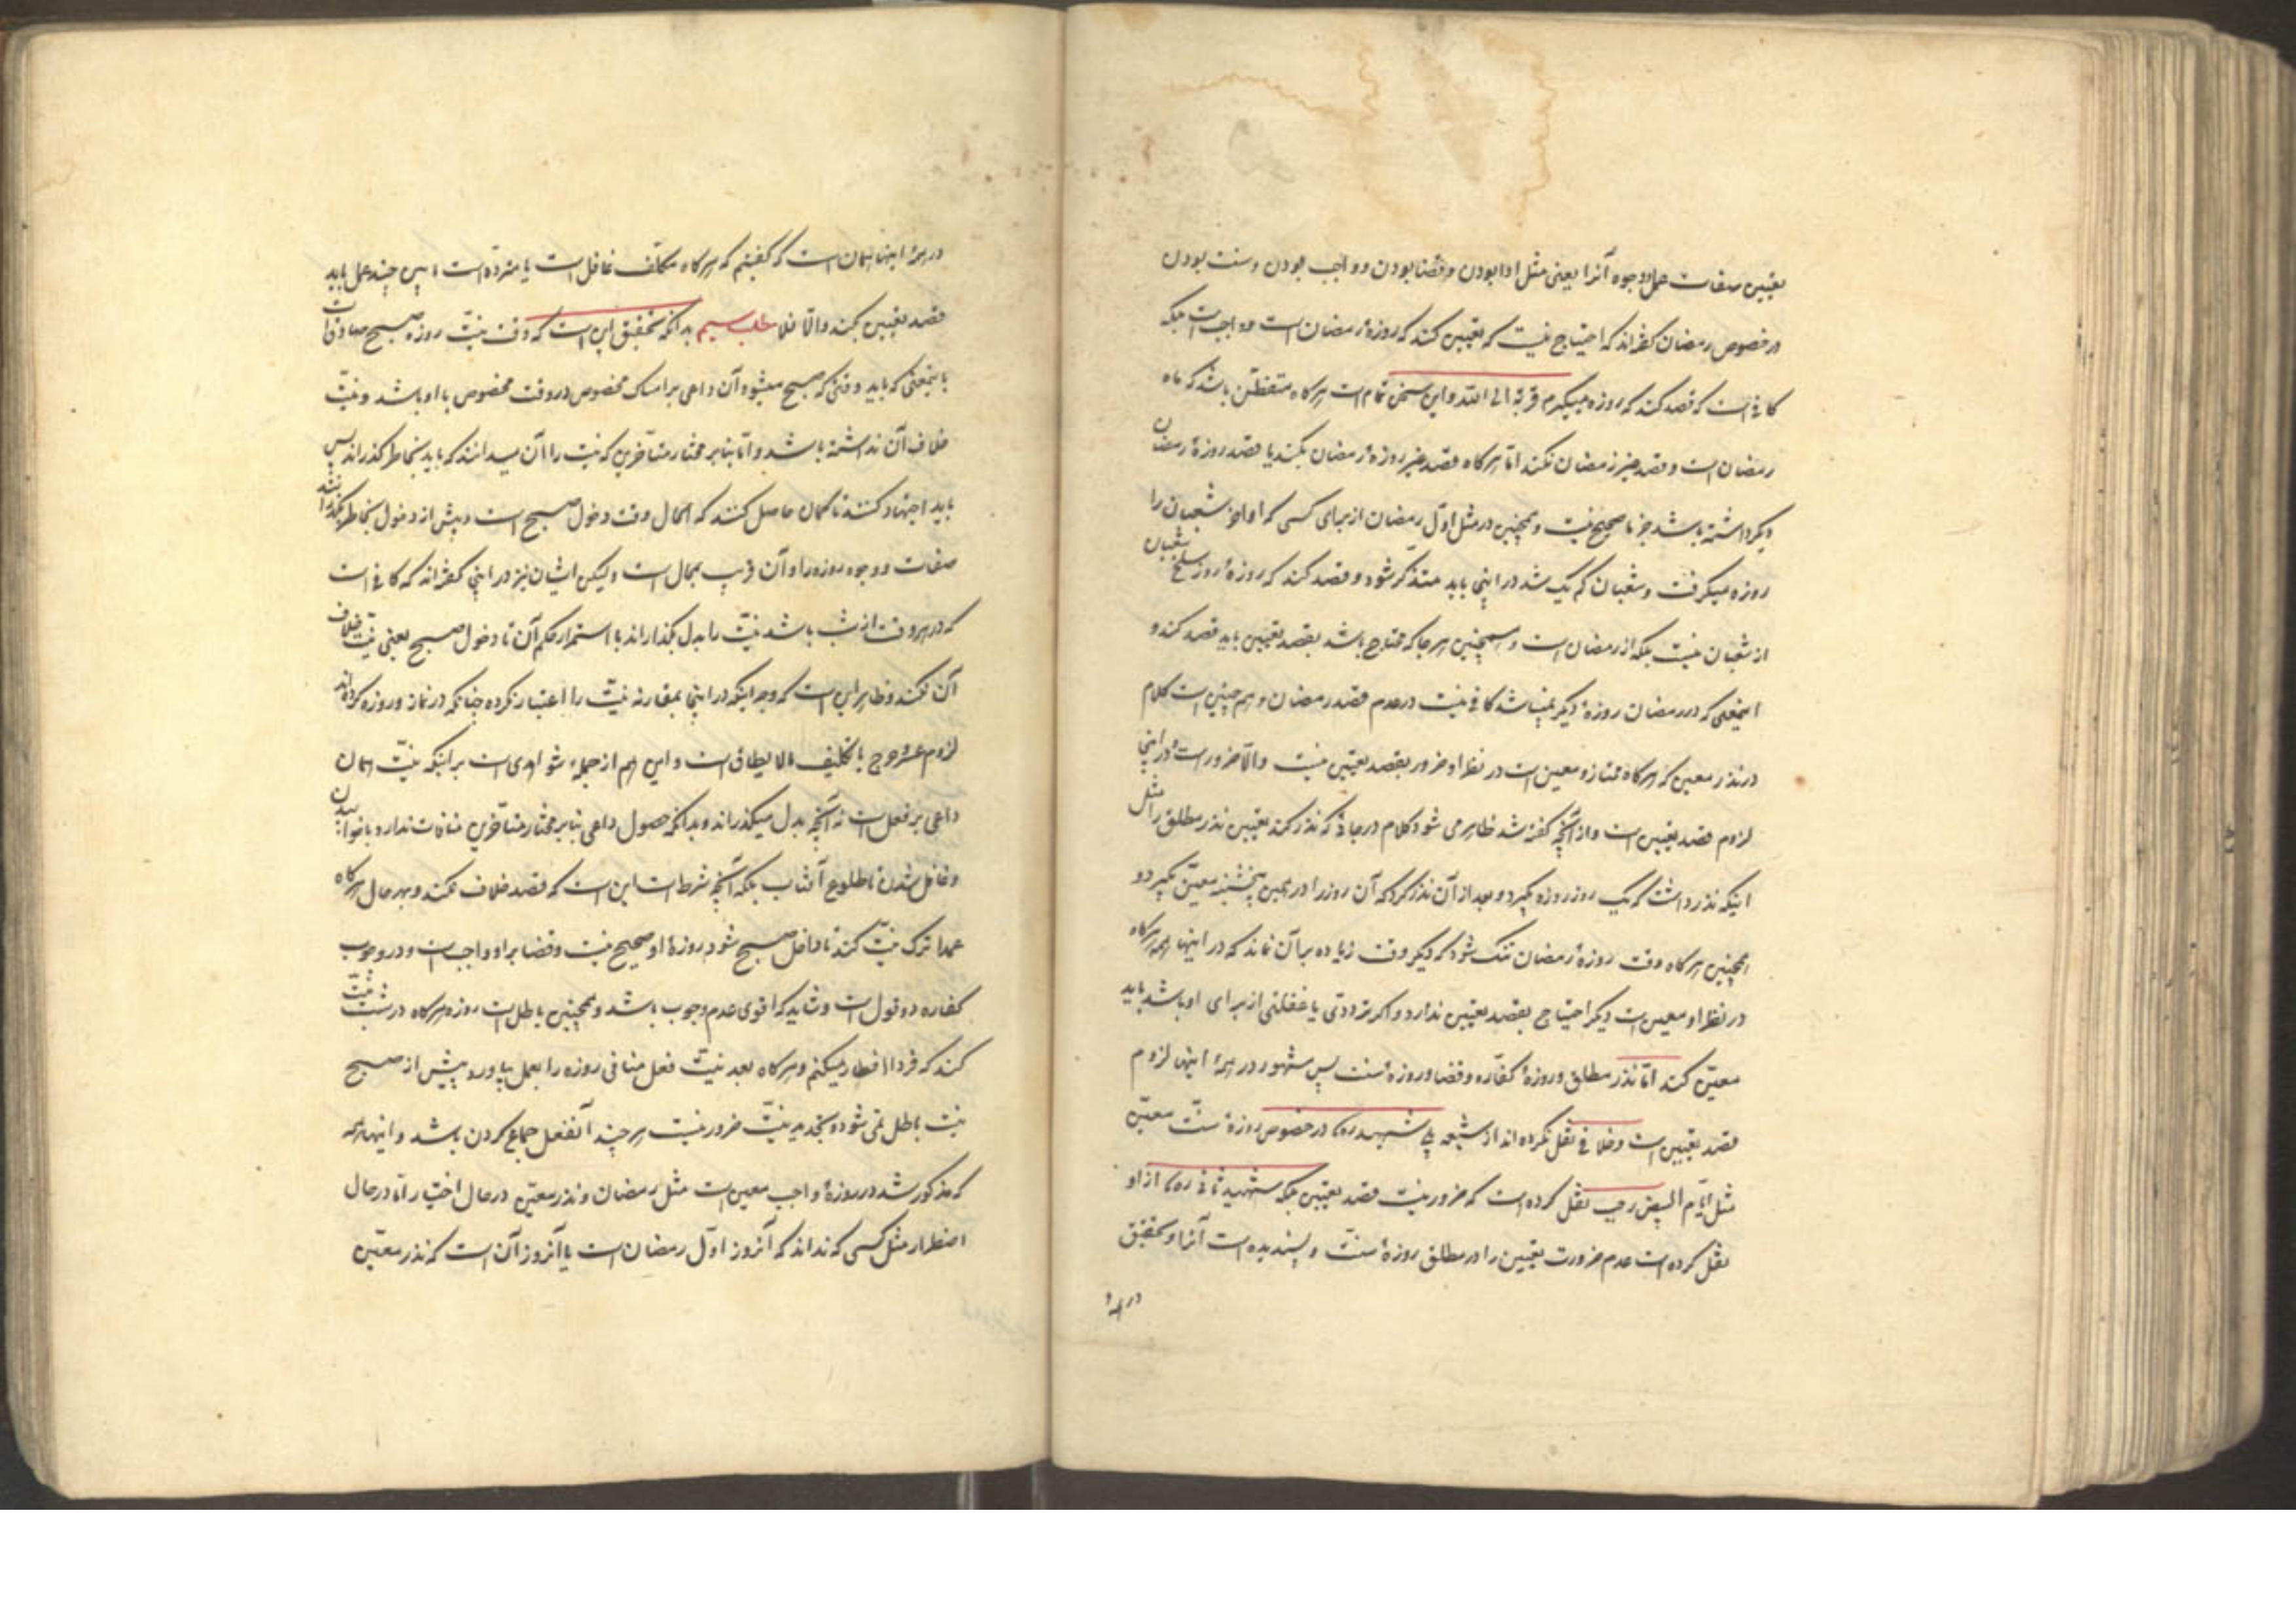 تعیین صفات عمل و وجوه آنرا یعنی مثل ادا بودن و قضا بودن و واجب بودن و سنت بودن
در خصوص رمضان گفته‌اند که احتیاج نیست که تعیین کند که روزهٔ رمضان است و واجب است بلکه
کافی است که قصد کند که روزه میگیرم قربة الی الله و این سخن تمام است هرگاه متفطن باشد که ماه
رمضان است و قصد غیر رمضان نکند اما هرگاه قصد غیر روزهٔ رمضان بکند یا قصد روزهٔ رمضان
دیگر داشته باشد جزما صحیح نیست و همچنین در مثل اول رمضان از برای کسی که اواخر شعبان را
روزه میگرفت و شعبان کم یک شد در اینجا باید متذکر شود و قصد کند که روزهٔ روز سلخ شعبان
از شعبان نیست بلکه از رمضان است و همچنین هر جا که محتاج باشد بقصد تعیین باید قصد کند و
اینمعنی که در رمضان روزهٔ دیگر نمیباشد کافی نیست در عدم قصد رمضان و هم چنین است کلام
در نذر معین که هرگاه ممتاز و معین است در نظر او ضرور بقصد تعیین نیست والا ضرور است و در اینجا
لزوم قصد تعیین است و از آنچه گفته شد ظاهر می شود کلام در جائی که نذر کند تعیین نذر مطلق را مثل
اینکه نذر داشت که یک روز روزه بگیرد و بعد از آن نذر کرد که آن روز را در همین پنجشنبه معین بگیرد و
همچنین هرگاه وقت روزهٔ رمضان تنگ شود که دیگر وقت زیاده بر آن نماند که در اینها همه هرگاه
در نظر او معین است دیگر احتیاج بقصد تعیین ندارد و اگر ترددی یا غفلتی از برای او باشد باید
معین کند اما نذر مطلق و روزهٔ کفاره و قضا و روزهٔ سنت پس مشهور در همهٔ اینها لزوم
قصد تعیین است و خلافی نقل نکرده‌اند از شیعه بلی شهید ره در خصوص روزهٔ سنت معین
مثل ایام البیض رجب نقل کرده است که ضرور نیست قصد تعیین بلکه شهید ثانی ره از او
نقل کرده است عدم ضرورت تعیین را در مطلق روزهٔ سنت و پسندیده است آنرا و تحقیق
در همهٔ
در همهٔ اینها همان است که گفتیم که هرگاه مکلف غافل است یا متردد است این چند عمل باید
قصد تعیین بکند والا فلا مطلب سیم بدانکه تحقیق این است که وقت نیت روزه صبح صادق است
باینمعنی که باید وقتی که صبح میشود آن داعی بر امساک مخصوص در وقت مخصوص با او باشد و نیت
خلاف آن نداشته باشد و اما بنابر مختار متاخرین که نیت را آن میدانند که باید بخاطر گذراند پس
باید اجتهاد کنند تا گمان حاصل کنند که الحال وقت دخول صبح است و پیش از دخول بخاطر بگذراند
صفات و وجوه روزه را و آن قریب بمحال است و لیکن ایشان نیز در اینجا گفته‌اند که کافی است
که در هر وقت از شب باشد نیت را بدل بگذراند با استمرار حکم آن تا دخول صبح یعنی نیت خلاف
آن نکند و ظاهر این است که وجه اینکه در اینجا بمقارنه نیت را اعتبار نکرده چنانکه در نماز و روزه کرده‌اند
لزوم عسر و حرج یا تکلیف مالا یطاق است و این هم از جمله شواهدی است بر اینکه نیت همان
داعی بر فعل است نه آنچه بدل میگذراند و بدانکه حصول داعی بنابر مختار متاخرین منافات ندارد با خوابیدن
و غافل شدن تا طلوع آفتاب بلکه آنچه شرط است این است که قصد خلاف نکند و بهر حال هرگاه
عمدا ترک نیت کند تا داخل صبح شود روزهٔ او صحیح نیست و قضا بر او واجب است و در وجوب
کفاره دو قول است و شاید که اقوی عدم وجوب باشد و همچنین باطل است روزه هرگاه در شب نیت
کند که فردا افطار میکنم و هرگاه بعد نیت فعل منافی روزه را بعمل بیاورد پیش از صبح
نیت باطل نمی شود و تجدید نیت ضرور نیست هر چند آنفعل جماع کردن باشد و اینها همه
که مذکور شد در روزهٔ واجب معین است مثل رمضان و نذر معین در حال اختیار اما در حال
اضطرار مثل کسی که نداند که آنروز اول رمضان است یا آنروز آن است که نذر معین